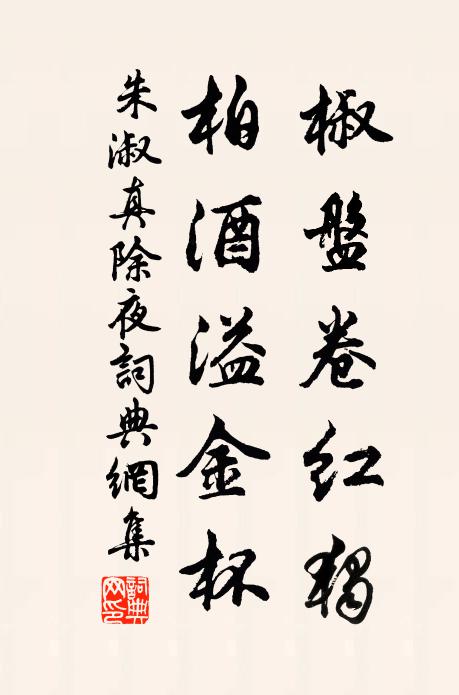 椒盤卷紅燭
柏酒溢金杯
朱淑真除夜詞典網集
詞典
网印